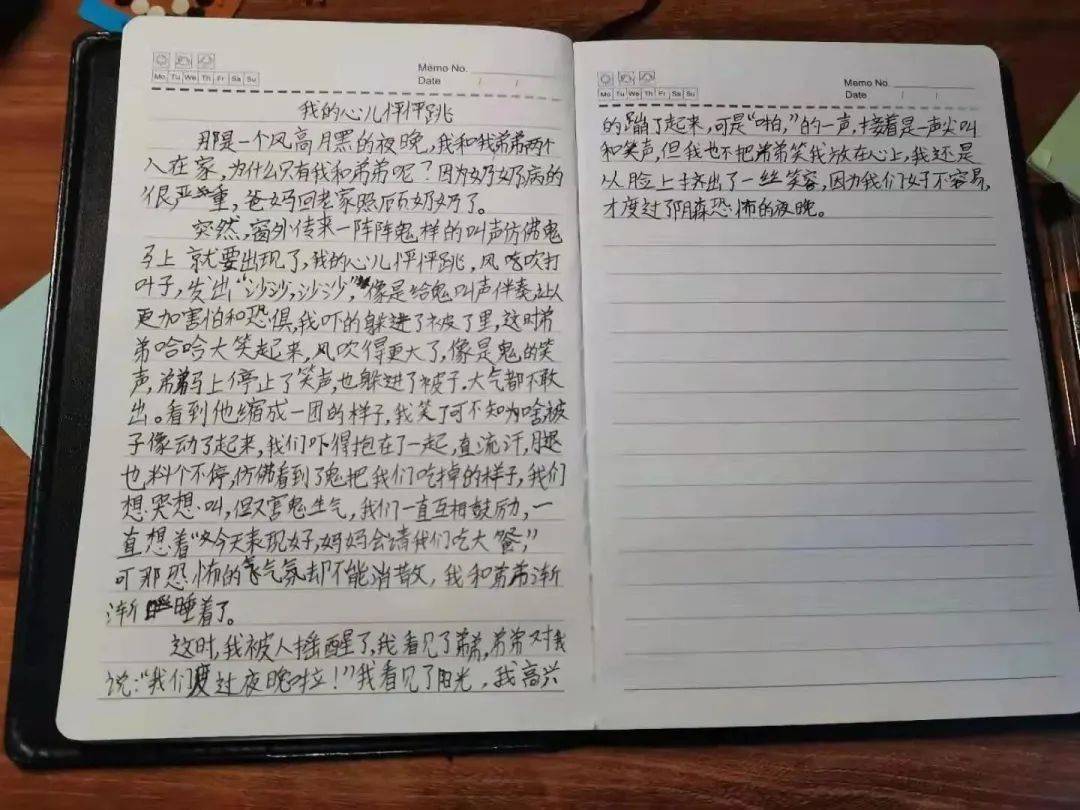 Memo No.
Mo Tu We Th Fr Sa Su
Date / /
我的心儿怦怦跳
那是一个风高月黑的夜晚,我和我弟弟两个
人在家,为什么只有我和弟弟呢?因为奶奶病的
很严重,爸妈回老家照顾奶奶了。
突然,窗外传来一阵阵鬼样的叫声仿佛鬼
马上就要出现了,我的心儿怦怦跳,风吹打
叶子,发出“沙沙,沙沙,”像是给鬼叫声伴奏,让人
更加害怕和恐惧,我吓的躲进了被了里,这时弟
弟哈哈大笑起来,风吹得更大了,像是鬼的笑
声,弟弟马上停止了笑声,也躲进了被子,大气都不敢
出。看到他缩成一团的样子,我笑了可不知为啥被
子像动了起来,我们吓得抱在了一起,直流汗,腿
也抖个不停,仿佛看到了鬼把我们吃掉的样子,我们
想哭想叫,但又害鬼生气,我们一直互相鼓励,一
直想着“今天表现好,妈妈会请我们吃大餐,”
可那恐怖的气氛却不能消散,我和弟弟渐
渐睡着了。
这时,我被人摇醒了,我看见了弟弟,弟弟对我
说:“我们度过夜晚啦!”我看见了阳光,我高兴
Memo No.
Mo Tu We Th Fr Sa Su
Date / /
的蹦了起来,可是“啪,”的一声,接着是一声尖叫
和笑声,但我也不把弟弟笑我放在心上,我还是
从脸上挤出了一丝笑容,因为我们好不容易,
才度过了阴森恐怖的夜晚。